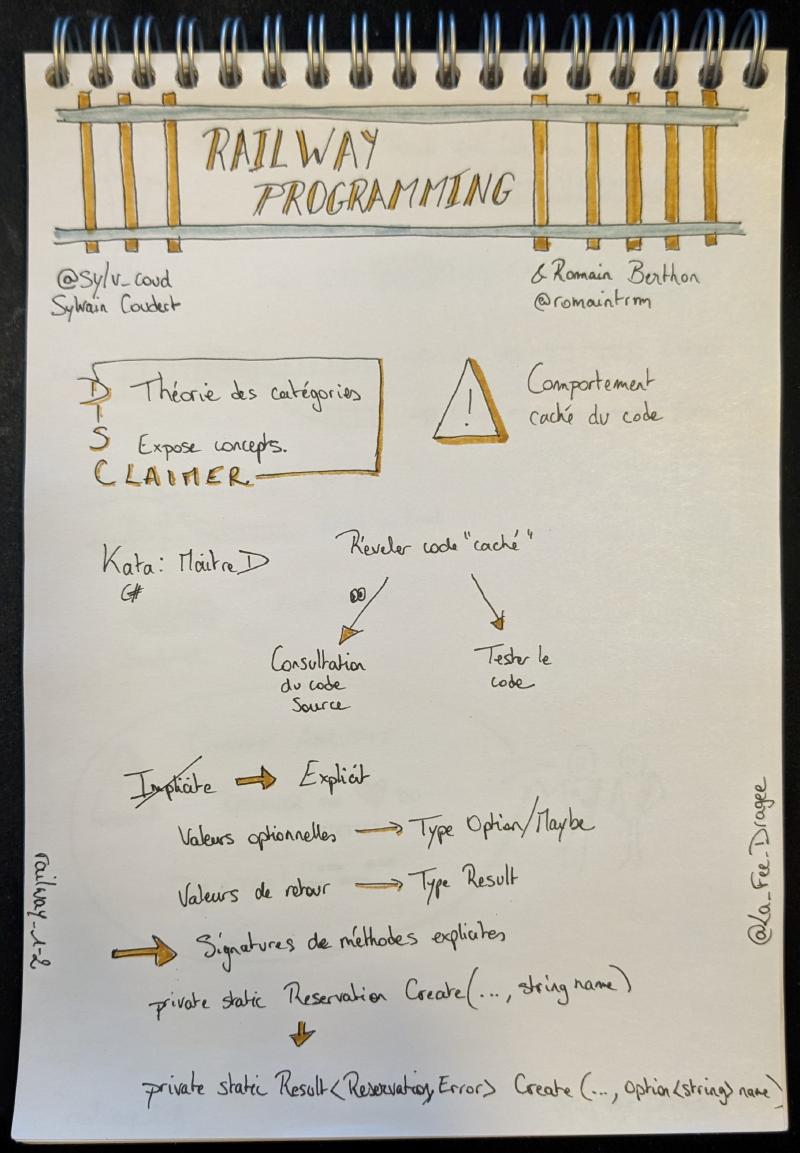 RAILWAY
PROGRAMMING
@sylv_coud
Sylvain Coudert
& Romain Berthon
@romaintrm
DISCLAIMER
Théorie des catégories
Expose concepts.
!
Comportement
caché du code
Kata: Maître D
C#
Réveler code "caché"
Consultation
du code
source
Tester le
code
Implicite → Explicit
Valeurs optionnelles → Type Option/Maybe
Valeurs de retour → Type Result
→ Signatures de méthodes explicites
private static Reservation Create(..., string name)
↓
private static Result<Reservation, Error> Create (..., Option<string> name)
railway_1-2
@La_Fee_Dragee